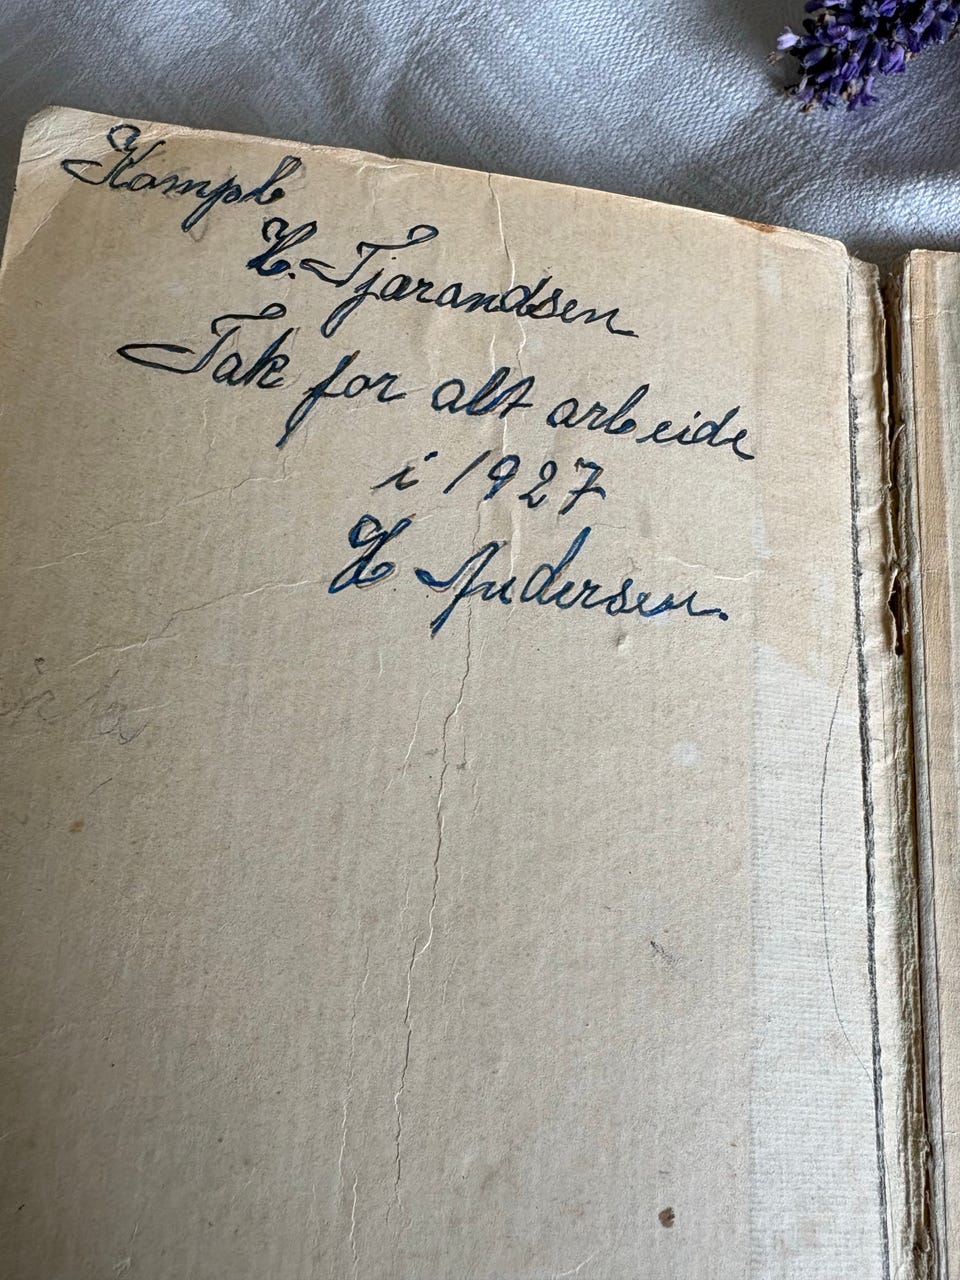 Kampb
H. Tjorandsen
Tak for alt arbeide
i 1927
H Andersen.